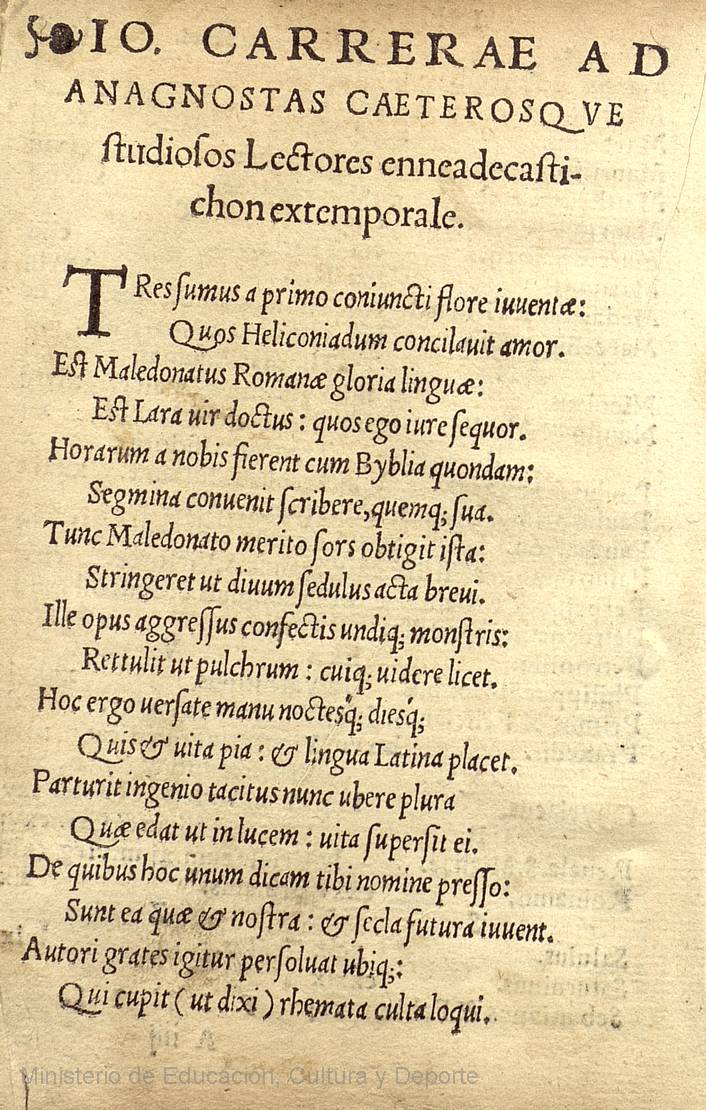 IO. CARRERAE AD
ANAGNOSTAS CAETEROSQVE
ſtudioſos Lectores enneadecaſti-
chon extemporale.
TRes ſumus a primo coniuncti flore iuuentæ:
Quos Heliconiadum concilauit amor.
Eſt Maledonatus Romanæ gloria linguæ:
Eſt Lara uir doctus: quos ego iure ſequor.
Horarum a nobis fierent cum Byblia quondam:
Segmina conuenit ſcribere, quemq; ſua.
Tunc Maledonato merito ſors obtigit iſta:
Stringeret ut diuum ſedulus acta breui.
Ille opus aggreſſus confectis undiq; monſtris:
Rettulit ut pulchrum: cuiq; uidere licet.
Hoc ergo uerſate manu noctesq́; diesq́;
Quis & uita pia: & lingua Latina placet.
Parturit ingenio tacitus nunc ubere plura
Quæ edat ut in lucem: uita ſuperſit ei.
De quibus hoc unum dicam tibi nomine preſſo:
Sunt ea quæ & noſtra: & ſecla futura iuuent.
Autori grates igitur perſoluat ubiq;:
Qui cupit (ut dixi) rhemata culta loqui.
Ministerio de Educación, Cultura y Deporte